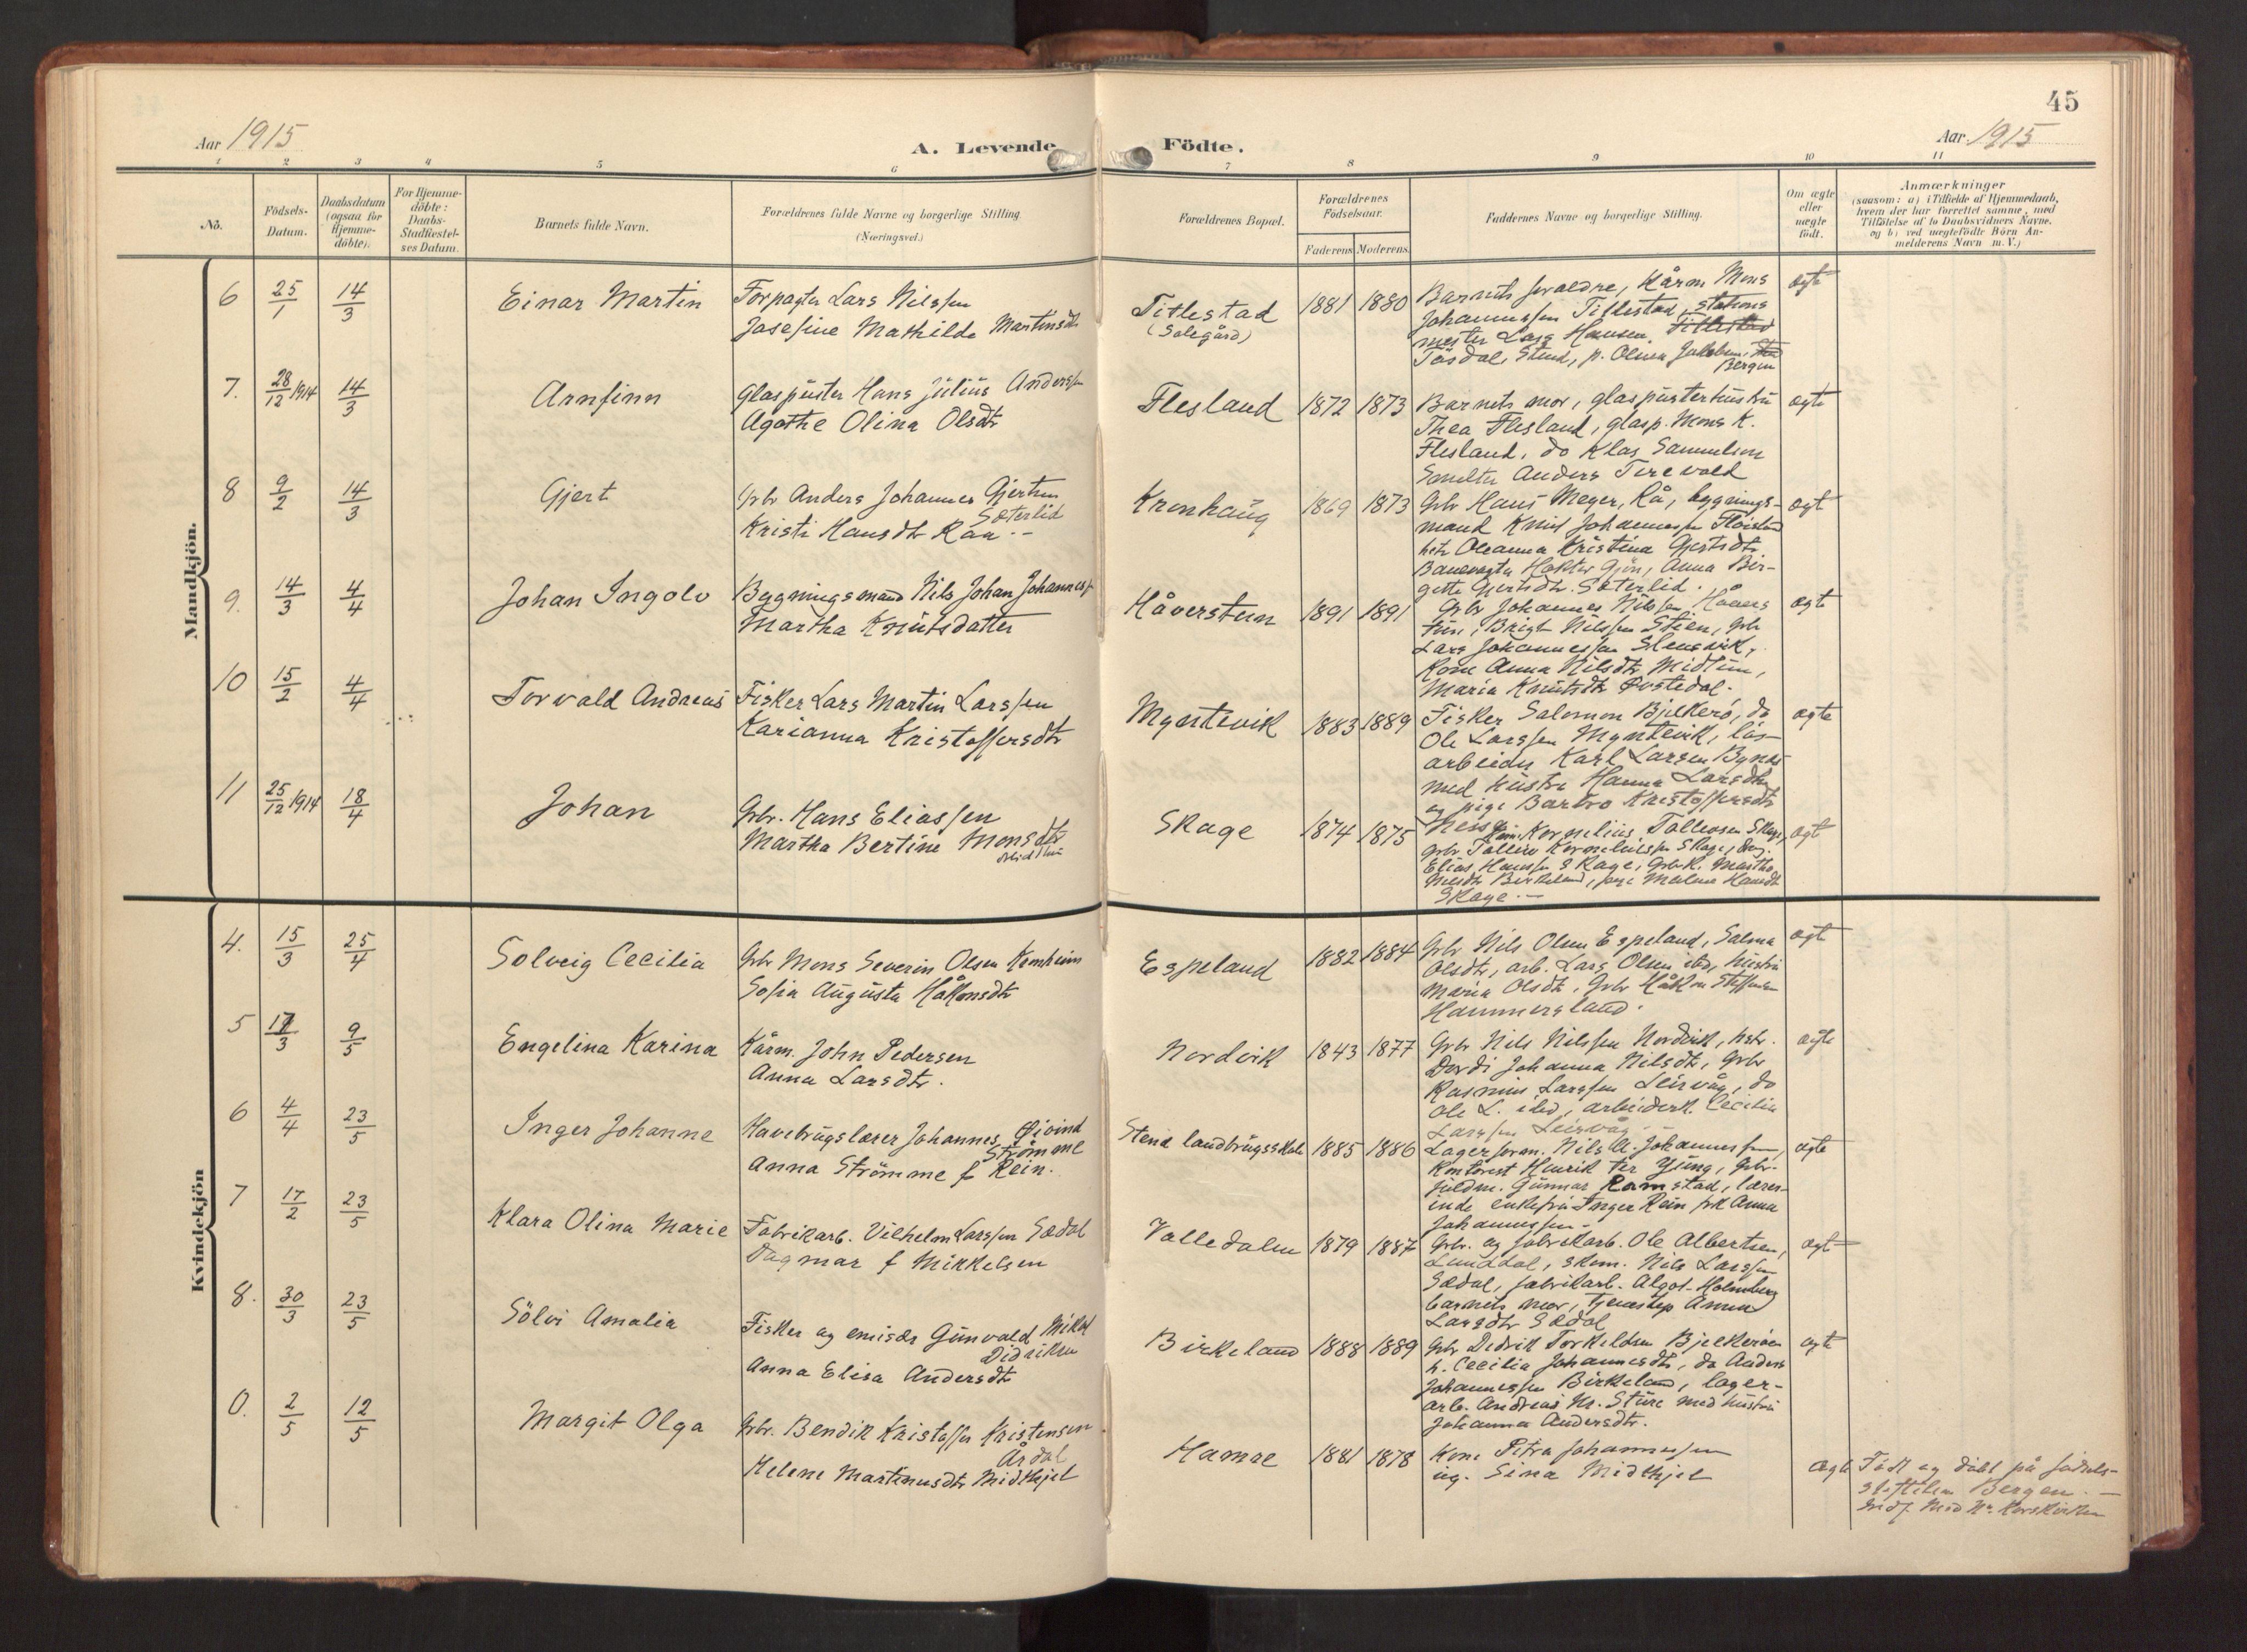 45
Aar 1915
A. Levende
Födte.
Aar 1915
1 2 3 4 5 6 7 8 9 10 11
No.
Födsels-
Datum.
Daabsdatum
(ogsaa for
Hjemme-
döbte).
For Hjemme-
döbte:
Daabs-
Stadfæstel-
ses Datum.
Barnets fulde Navn.
Forældrenes fulde Navne og borgerlige Stilling
(Næringsvei.)
Forældrenes Bopæl.
Forældrenes
Födselsaar.
Faderens Moderens
Faddernes Navne og borgerlige Stilling.
Om ægte
eller
uægte
födt.
Anmærkninger
(saasom: a) i Tilfælde af Hjemmedaab,
hvem der har forrettet samme, med
Tilföielse af to Daabsvidners Navne.
og b) ved uægtefödte Börn An-
melderens Navn m. V.)
Mandkjön.
6 25/1 14/3 Einar Martin
Forpagter Lars Nilssen
Josefine Mathilde Martinsdtr
Titlestad
(Solegård)
1881 1880
Barnets foraeldre, Kårm. Mons
Johannessen Titlestad, stations
mester Lars Hansen,
Stend, p. Olena Bergen
ægte
7. 28/12 1914 14/3 Arnfinn
Glaspuster Hans Julius Anderss
Agathe Olina Olsdtr
Flesland
1872 1873
Barnets mor, glaspusterhustru
Thea Flesland, glasp. Mons K.
Flesland, do Klas Samuelsen
Smelter Anders
ægte
8 9/2 14/3 Gjert
Grbr Anders Johannes Gjertsen
Sæterlid
Kristi Hansdtr Råa
Kronhaug
1869 1873
Grbr Hans Meyer, Rå, bygnings-
mand Knut Johannessen
hstr Oleanna Kristina Gjertsdtr
Banevogter Gjön, Anna Bir-
gitte Gjertsdtr. Sæterlid.
ægt
9. 14/3 4/4 Johan Ingolv
Bygningsmand Nils Johan Johanness
Martha Knutsdatter
Håverstun
1891 1891
Grbr Johannes Nilssen Håvers
tun, Brigt Nilssen Stien, Grb
Lars Johannessen Slensvik,
Kone Anna Nilsdtr Midtun,
Maria Knutsdtr
ægte
10 15/2 4/4 Torvald Andreas
Fisker Lars Martin Larssen
Karianna Kristoffersdtr
Myntevik
1883 1889
Fisker Salomon Bjelkerö, do
Ole Larssen Myntevik, lös-
arbeider Karl Larsen Bynes
med hustru Hanna Larsdtr
og pige Barbro Kristoffersdtr
ægte
11 25/12 1914 18/4 Johan
Grbr. Hans Eliassen
Martha Bertine Monsdtr
Midttun
Skage
1874 1875
Hessa
Kornelius Tollevsen Skage,
grbr Tollev Kornelinssen Skage, ung.
Elias Hanssen Skage, Grbrk. Martha
Nilsdtr Birkeland, pige Malena Hansdtr
Skage
ægt
Kvindekjön
4. 15/3 25/4 Solveig Cecilia
Grbr Mons Severin Olsen Kemheim
Sofia Augusta Håkonsdtr
Espeland
1882 1884
Grbr Nils Olsen Espeland, Salma
Olsdtr, arb. Lars Olsen ibd, hustru
Maria Olsdtr, Grbr Håkon Steffensen
Hammersland.
ægt
5 17/3 9/5 Engelina Karina
Kårm. John Pedersen
Anna Larsdtr.
Nordvik
1843 1877
Grbr Nils Nilssen Nordvik, hstr.
Dordi Johanna Nilsdtr, Grbr
Rasmus Larssen Leirvåg, do
Ole L. ibd, arbeiderk. Cecilia
Larssen Leirvåg
ægte
6 4/4 23/5 Inger Johanne
Havebrugslærer Johannes Øivind
Strömme
Anna Strömme f Rein.
Stend landbrugsskole
1885 1886
Lagerform. Nils Johannessen,
Kontorist Henrik Ter Jung, Grbr.
fuldm. Gunnar Ramstad, lærer-
inde enkefru Inger Rein frk Anna
Johannessen
ægte
7 17/2 23/5 Klara Olina Marie
Fabrikarb. Vilhelm Larssen Sædal
Dagmar f Mikkelsen
Valledalen
1879 1887
Grbr. og fabrikarb. Ole Albertsen,
skom. Nils Larssen
Sædal, fabrikarb. Algot Holmberg
barnets mor, tjenestep Anna
Larsdtr Sædal
ægt
8. 30/3 23/5 Sölvi Amalia
Fisker og emisær Gunvald Mikal
Didriksen
Anna Elisa Andersdtr
Birkeland
1888 1889
Grbr Didrik Torkildsen Bjelkeröen
h. Cecilia Johannesdtr, do Anders
Johannessen Birkeland, lager-
arb. Andreas Sture med hustru
Johanna Andersdtr.
ægte
0. 2/5 12/5 Margit Olga
Grbr. Bendik Kristoffer Kristensen
Årdal
Helene Martinusdtr Midthjel
Hamre
1881 1878
Kone Petra Johannessen
ug. Sina Midthjel
ægte
Födt og döbt på födsels-
stiftelsen Bergen.
Korskirken